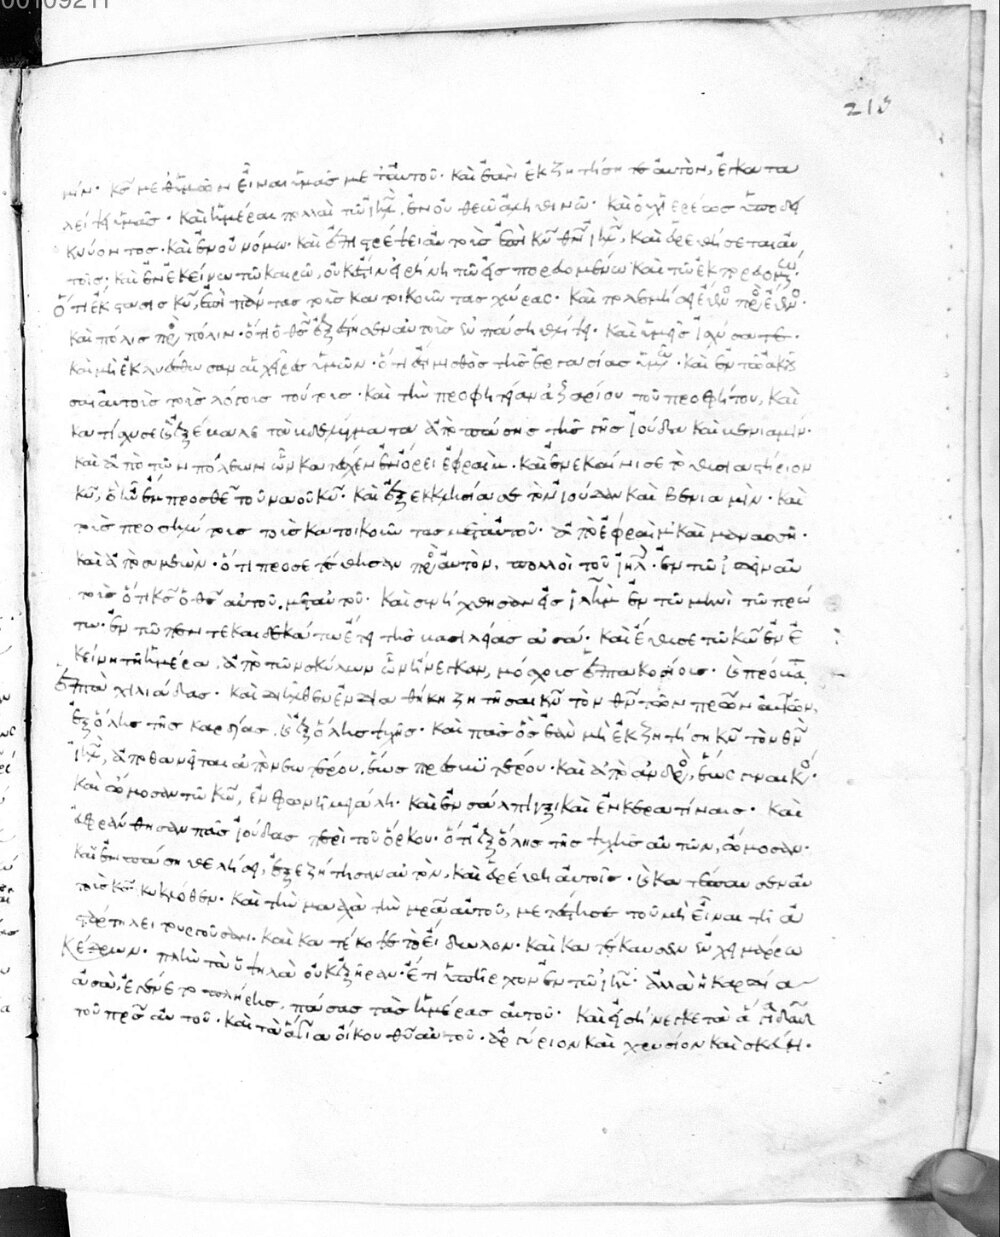 00109211
213
μίν· κς μεθ' ὑμῶν ἐν τῷ εἶναι ὑμᾶς μετ' αὐτοῦ· καὶ ἐὰν ἐκζητήσητε αὐτὸν, ἐγκατα
λείψει ὑμᾶς· καὶ ἡμέραι πολλαὶ τῷ ιηλ, ἐν οὐ θεῷ ἀληθινῷ· καὶ οὐχ ἱερέως ὑποδει
κνύοντος· καὶ ἐν οὐ νόμῳ· καὶ ἐπιστρέψει αὐτοὺς ἐπὶ κν θν ιηλ, καὶ εὑρεθήσεται αὐ
τοῖς· καὶ ἐν ἐκείνῳ τῷ καιρῷ, οὐκ ἔστιν εἰρήνη τῷ εἰσπορευομένῳ καὶ τῷ ἐκπορευομένῳ·
ὅτι ἔκστασις κυ, ἐπὶ πάντας τοὺς κατοικοῦντας χώρας· καὶ πολεμήσει ἔθνος πρὸς ἔθνος·
καὶ πόλις πρὸς πόλιν· ὅτι ὁ θς ἐξέστησεν αὐτοὺς ἐν πάσῃ θλίψει· καὶ ὑμεῖς ἰσχύσατε·
καὶ μὴ ἐκλυέσθωσαν αἱ χεῖρες ὑμῶν· ὅτι ἔστι μισθὸς τῆς ἐργασίας ὑμῶν· καὶ ἐν τῷ ἀκοῦ
σαι αὐτοὺς τοὺς λόγους τούτους· καὶ τὴν προφητείαν ἀζαρίου τοῦ προφήτου, καὶ
κατίσχυσε καὶ ἐξέβαλε τὰ βδελύγματα ἀπὸ πάσης τῆς γῆς ἰούδα καὶ βενιαμίν·
καὶ ἀπὸ τῶν πόλεων ὧν κατέσχεν ἐν ὄρει ἐφραίμ· καὶ ἐνεκαίνισε τὸ θυσιαστήριον
κυ, ὃ ἦν ἔμπροσθεν τοῦ ναοῦ κυ· καὶ ἐξεκκλησίασε τὸν ἰούδαν καὶ βενιαμὶν· καὶ
τοὺς προσηλύτους τοὺς κατοικοῦντας μετ' αὐτοῦ· ἀπὸ ἐφραὶμ καὶ μανασσῆ·
καὶ ἀπὸ συμεών· ὅτι προσετέθησαν πρὸς αὐτὸν, πολλοὶ τοῦ ιηλ· ἐν τῷ ἰδεῖν αὐ
τοὺς ὅτι κς ὁ θς αὐτοῦ, μετ' αὐτοῦ· καὶ συνήχθησαν εἰς ιλημ ἐν τῷ μηνὶ τῷ τρί
τῳ· ἐν τῷ πεντεκαιδεκάτῳ ἔτει τῆς βασιλείας ἀσά· καὶ ἔθυσε τῷ κω ἐν ἐ
κείνῃ τῇ ἡμέρᾳ, ἀπὸ τῶν σκύλων ὧν ἤνεγκαν, μόσχους ἑπτακοσίους· καὶ πρόβατα
ἑπτὰ χιλιάδας· καὶ διῆλθεν ἐν διαθήκῃ ζητῆσαι κν τὸν θν τῶν πρων αὐτῶν,
ἐξ ὅλης τῆς καρδίας, καὶ ἐξ ὅλης ψυχῆς· καὶ πᾶς ὃς ἐὰν μὴ ἐκζητήσῃ κν τὸν θν
ιηλ, ἀποθανεῖται ἀπὸ νεωτέρου, ἕως πρεσβυτέρου· καὶ ἀπὸ ἀνδρὸς, ἕως γυναικός·
καὶ ὤμοσαν τῷ κω, ἐν φωνῇ μεγάλῃ· καὶ ἐν σάλπιγξι καὶ ἐν κερατίναις· καὶ
εὐφράνθησαν πᾶς ἰούδας περὶ τοῦ ὅρκου· ὅτι ἐξ ὅλης τῆς ψυχῆς αὐτῶν, ὤμοσαν·
καὶ ἐν πάσῃ θελήσει, ἐξεζήτησαν αὐτὸν, καὶ εὑρέθη αὐτοῖς· καὶ κατέπαυσεν αὐ
τοῖς κς κυκλόθεν· καὶ τὴν μααχὰ τὴν μρα αὐτοῦ, μετέστησε τοῦ μὴ εἶναι τῇ ἀ
στάρτῃ λειτουργοῦσαν· καὶ κατέκοψε τὸ εἴδωλον· καὶ κατέκαυσεν ἐν χειμάρρῳ
κέδρων· πλὴν τὰ ὑψηλὰ οὐκ ἐξῆραν· ἔτι ὑπῆρχον ἐν τῷ ιηλ· ἀλλὰ ἡ καρδία ἀ
ἀσὰ, ἐγένετο πλήρης, πάσας τὰς ἡμέρας αὐτοῦ· καὶ εἰσήνεγκε τὰ ἅγια δαδ
τοῦ πρς αὐτοῦ· καὶ τὰ ἅγια οἴκου θυ αὐτοῦ· ἀργύριον καὶ χρυσίον καὶ σκεύη·